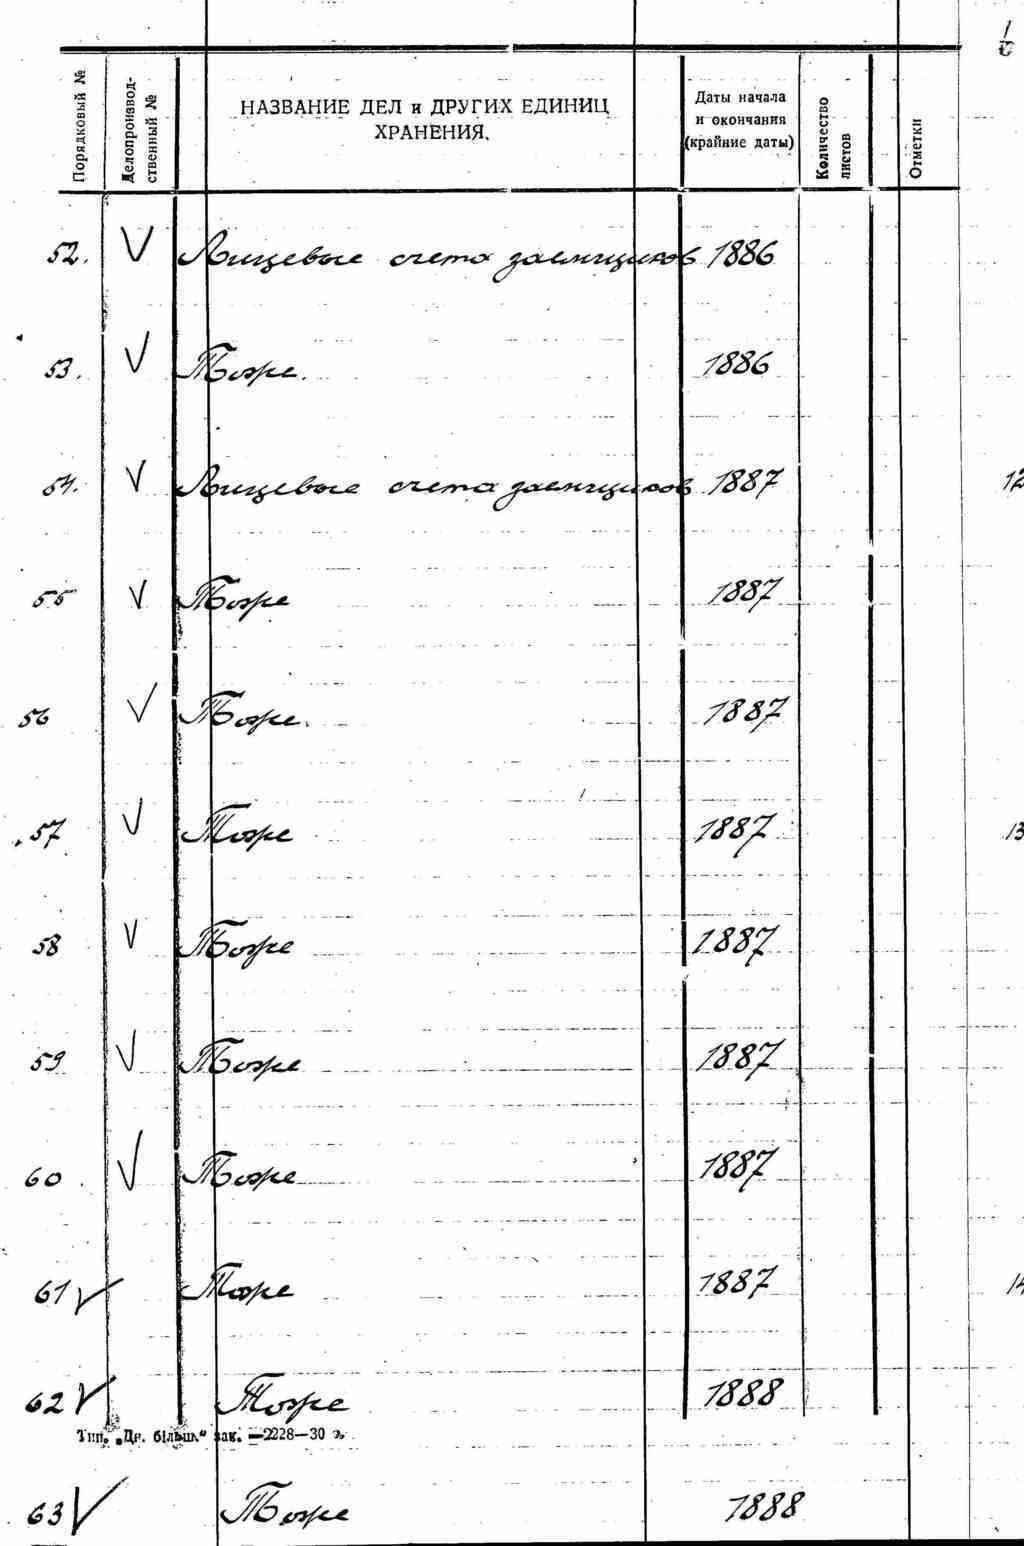 Порядковый №
Делопроизвод-
ственный №
НАЗВАНИЕ ДЕЛ и ДРУГИХ ЕДИНИЦ
ХРАНЕНИЯ.
Даты начала
и окончания
(крайние даты)
Количество
листов
Отметки
52. V Лицевые счета заемщиков 1886
53. V Тоже. 1886
54. V Лицевые счета заемщиков 1887
12
55 V Тоже 1887
56 V Тоже. 1887
57 V Тоже 1887
13
58 V Тоже 1887
59 V Тоже 1887
60 V Тоже 1887
61 V Тоже 1887
14
62 V Тоже 1888
Тип. „Др. більш." зак. —2228—30
63 V Тоже 1888